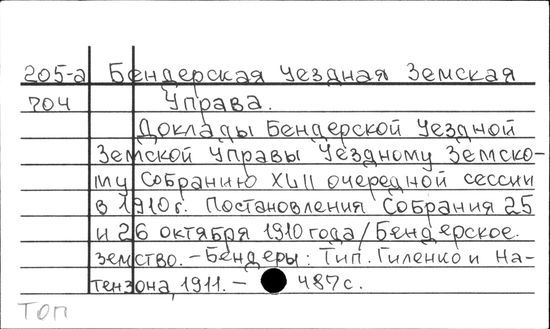 205-а Бендерская Уездная Земская
704 Управа.
Доклады Бендерской Уездной
Земской Управы Уездному Земско-
му Собранию XLII очередной сессии
в 1910г. Постановления Собрания 25
и 26 октября 1910 года/Бендерское.
земство. - Бендеры: Тип. Гиленко и На-
тензона, 1911. - 487с.
ТОП